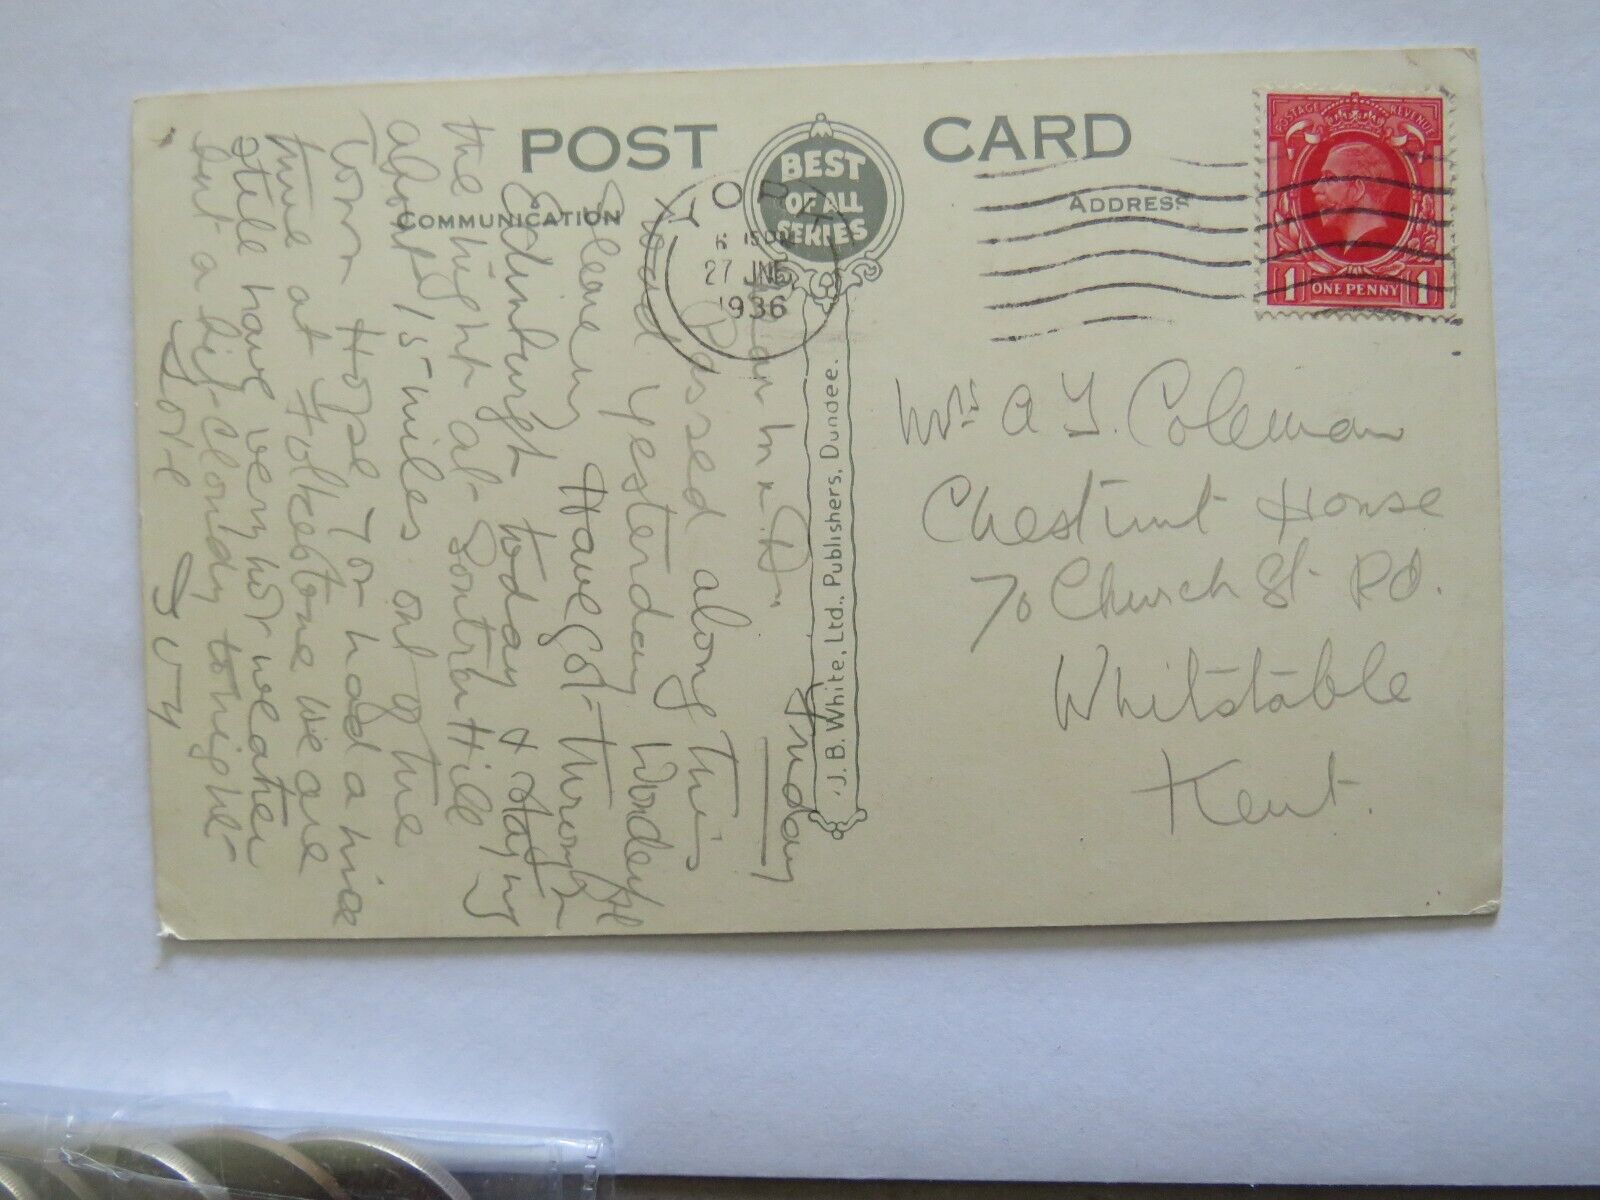 POST CARD
BEST
OF ALL
SERIES
COMMUNICATION
ADDRESS
YORK
6 15 PM
27 JNE
1936
POSTAGE REVENUE
1 ONE PENNY 1
J. B. White, Ltd., Publishers, Dundee.
Mrs A Y. Coleman
Chestnut House
70 Church St Rd.
Whitstable
Kent.
Friday
Dear Mrs H.
Passed along this
road yesterday Wonderful
Scenery Have got through
Edinburgh today & staying
the night at Soutra Hill
about 15 miles out of the
Town Hope you had a nice
time at Folkestone we are
still have very hot weather
but a bit cloudy tonight
Love